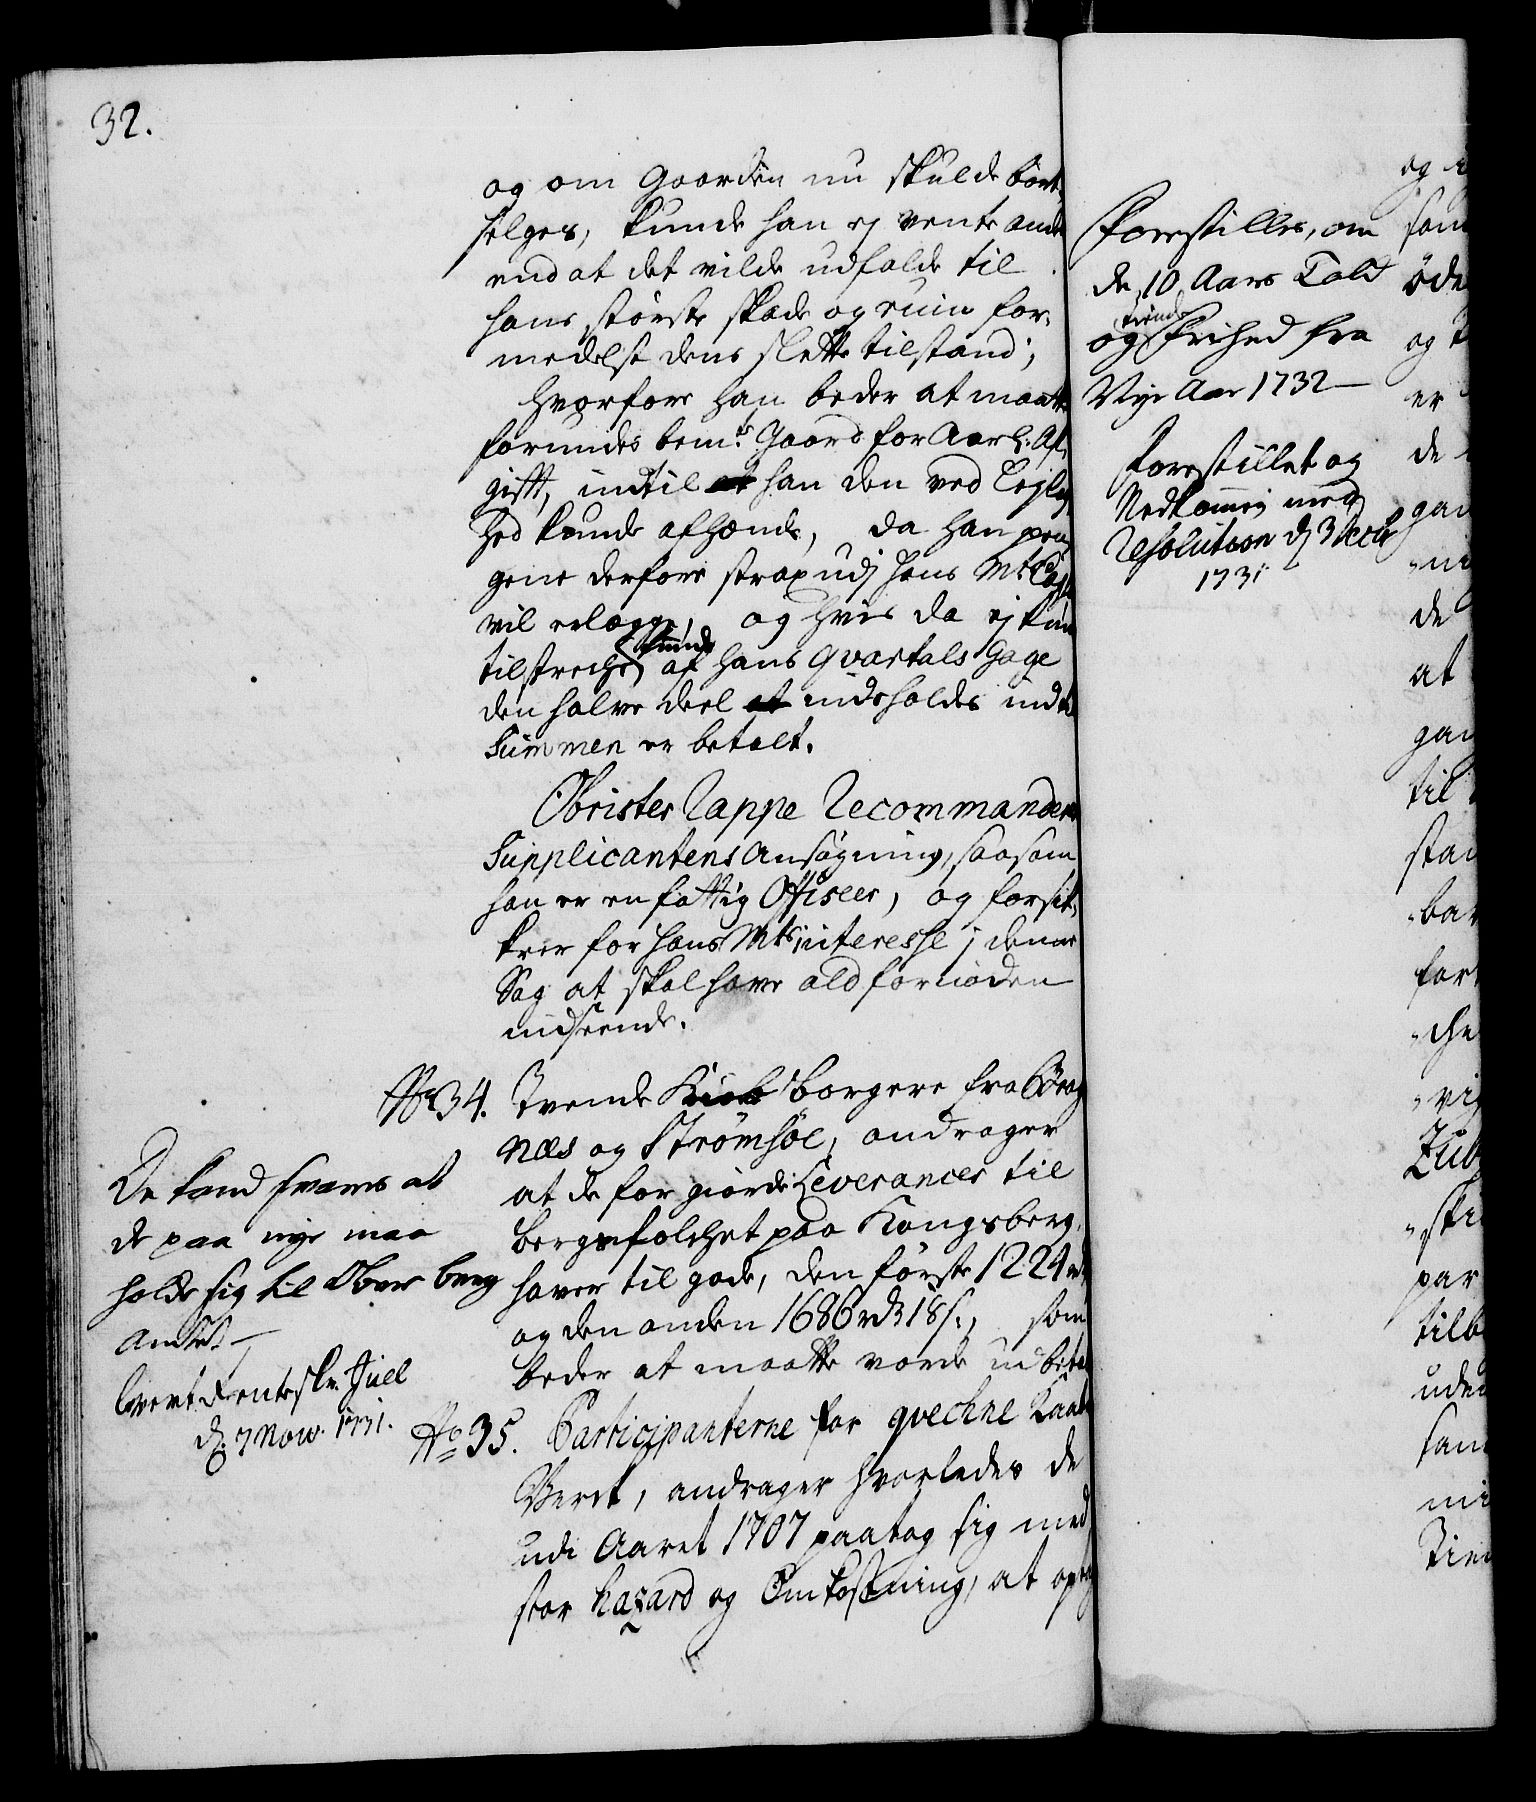 32.
og om Gaarden nu skulde bort-
selges, kunde han ej vente andet
end at det vilde udfalde til
hans største skade og ruin for-
medelst dens slette tilstand;
hvorfore han beder at maatte
forundes bemte Gaard for Aarl: Af-
gifft, indtil han den ved Lejlig-
hed kunde afhænde, da han pen-
gene derfore strax udj Hans Mts Casse
vil erlægge, og hvis da ej kunde
tilstreche, kunde af hans Qvartals Gage
den halve deel indeholdes indtil
Summen er betalt.
Obrister Rappe Recommanderer
Supplicantens Ansøgning, saasom
han er en fattig Officeer, og forsik-
krer for Hans Mts interesse j denne
Sag at skal have ald fornøden
indseende.
No 34. Tvende borgere fra Brag-
næs og Strømsøe, andrager
at de for giorde Leverancer til
bergfolchet paa Kongsberg,
haver til gode, den første 1224 rdr
og den anden 1686 rdr 18 s:, som
beder at maatte vorde udbetalt
De kand svares at
de paa nye maa
holde sig til Ober berg
Amtet
levert Renteskr. Juel
d. 7 Nov. 1731.
No 35. Participanterne for qvechne Kaaber
Verck, andrager hvorledes de
udi Aaret 1707 paatog sig med
stor hazard og Omkostning, at optage
Forestilles, om
de 10 Aars Told
og tiende Frihed fra
Nye Aar 1732
Forestillet og
Nedkommen med
Resolution d. 3 Decbr
1731
og
som
øde
og
er
de
gan
ni
de
at
gan
til
stan
bar
for
che
vi
Zub
ski
par
tilb
uden
sam
mi
Tien